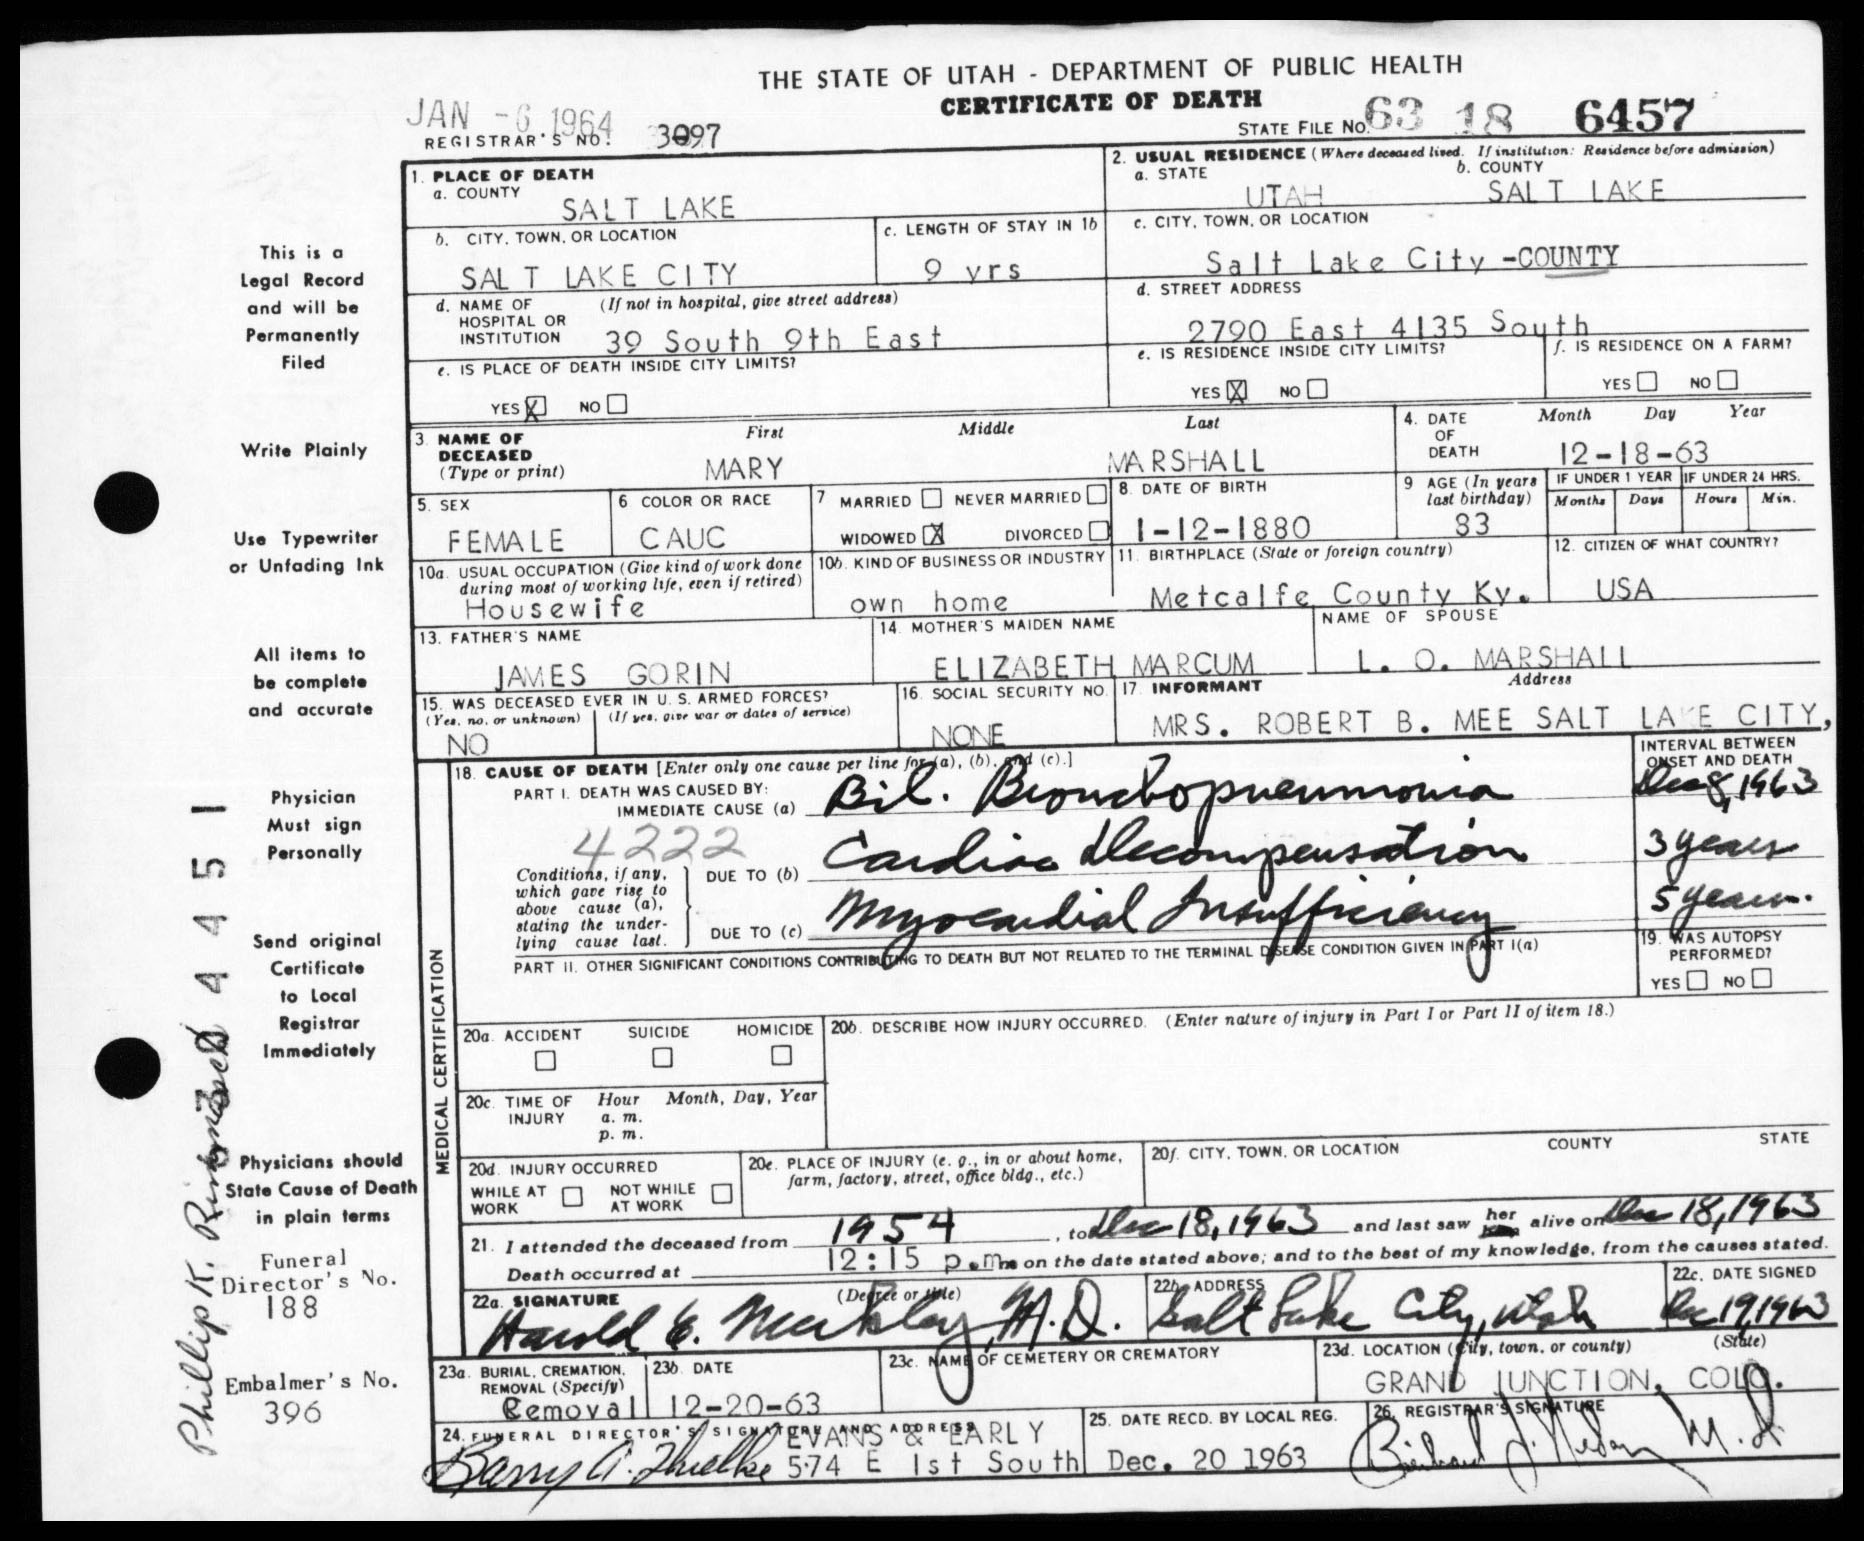 THE STATE OF UTAH - DEPARTMENT OF PUBLIC HEALTH
CERTIFICATE OF DEATH
JAN -6 1964
REGISTRAR'S NO. 3097
STATE FILE NO. 63 18 6457
1. PLACE OF DEATH
a. COUNTY
SALT LAKE
2. USUAL RESIDENCE (Where deceased lived. If institution: Residence before admission)
a. STATE UTAH
b. COUNTY SALT LAKE
b. CITY, TOWN, OR LOCATION
SALT LAKE CITY
c. LENGTH OF STAY IN 1b
9 yrs
c. CITY, TOWN, OR LOCATION
Salt Lake City -COUNTY
d. NAME OF HOSPITAL OR INSTITUTION (If not in hospital, give street address)
39 South 9th East
d. STREET ADDRESS
2790 East 4135 South
e. IS PLACE OF DEATH INSIDE CITY LIMITS?
YES X NO
e. IS RESIDENCE INSIDE CITY LIMITS?
YES X NO
f. IS RESIDENCE ON A FARM?
YES NO
3. NAME OF DECEASED (Type or print)
First Middle Last
MARY MARSHALL
4. DATE OF DEATH Month Day Year
12-18-63
5. SEX
FEMALE
6 COLOR OR RACE
CAUC
7 MARRIED NEVER MARRIED
WIDOWED X DIVORCED
8. DATE OF BIRTH
1-12-1880
9 AGE (In years last birthday)
83
IF UNDER 1 YEAR IF UNDER 24 HRS.
Months Days Hours Min.
10a. USUAL OCCUPATION (Give kind of work done during most of working life, even if retired)
Housewife
10b. KIND OF BUSINESS OR INDUSTRY
own home
11. BIRTHPLACE (State or foreign country)
Metcalfe County Ky.
12. CITIZEN OF WHAT COUNTRY?
USA
13. FATHER'S NAME
JAMES GORIN
14. MOTHER'S MAIDEN NAME
ELIZABETH MARCUM
NAME OF SPOUSE
L. O. MARSHALL
15. WAS DECEASED EVER IN U.S. ARMED FORCES?
(Yes, no, or unknown) (If yes, give war or dates of service)
NO
16. SOCIAL SECURITY NO.
NONE
17. INFORMANT Address
MRS. ROBERT B. MEE SALT LAKE CITY,
MEDICAL CERTIFICATION
18. CAUSE OF DEATH [Enter only one cause per line for (a), (b), and (c).]
INTERVAL BETWEEN ONSET AND DEATH
PART I. DEATH WAS CAUSED BY:
IMMEDIATE CAUSE (a) Bil. Bronchopneumonia Dec 8, 1963
4222
Conditions, if any, which gave rise to above cause (a), stating the underlying cause last.
DUE TO (b) Cardiac Decompensation 3 years
DUE TO (c) Myocardial Insufficiency 5 years.
PART II. OTHER SIGNIFICANT CONDITIONS CONTRIBUTING TO DEATH BUT NOT RELATED TO THE TERMINAL DISEASE CONDITION GIVEN IN PART I(a)
19. WAS AUTOPSY PERFORMED?
YES NO
20a. ACCIDENT SUICIDE HOMICIDE
20b. DESCRIBE HOW INJURY OCCURRED. (Enter nature of injury in Part I or Part II of item 18.)
20c. TIME OF INJURY Hour Month, Day, Year
a. m.
p. m.
20d. INJURY OCCURRED
WHILE AT WORK NOT WHILE AT WORK
20e. PLACE OF INJURY (e. g., in or about home, farm, factory, street, office bldg., etc.)
20f. CITY, TOWN, OR LOCATION COUNTY STATE
21. I attended the deceased from 1954, to Dec 18, 1963 and last saw her him alive on Dec 18, 1963
Death occurred at 12:15 p.m. on the date stated above; and to the best of my knowledge, from the causes stated.
22a. SIGNATURE (Degree or title)
Harold E. Merkley, M.D.
22b. ADDRESS
Salt Lake City, Utah
22c. DATE SIGNED
Dec 19, 1963
23a. BURIAL, CREMATION, REMOVAL (Specify)
Removal
23b. DATE
12-20-63
23c. NAME OF CEMETERY OR CREMATORY
23d. LOCATION (City, town, or county) (State)
GRAND JUNCTION, COLO.
24. FUNERAL DIRECTOR'S SIGNATURE AND ADDRESS
EVANS & EARLY
Barry A. 574 E 1st South
25. DATE RECD. BY LOCAL REG.
Dec. 20 1963
26. REGISTRAR'S SIGNATURE
M.D.
This is a
Legal Record
and will be
Permanently
Filed
Write Plainly
Use Typewriter
or Unfading Ink
All items to
be complete
and accurate
Physician
Must sign
Personally
Send original
Certificate
to Local
Registrar
Immediately
Physicians should
State Cause of Death
in plain terms
Funeral
Director's No.
188
Embalmer's No.
396
Phillip K.
44451